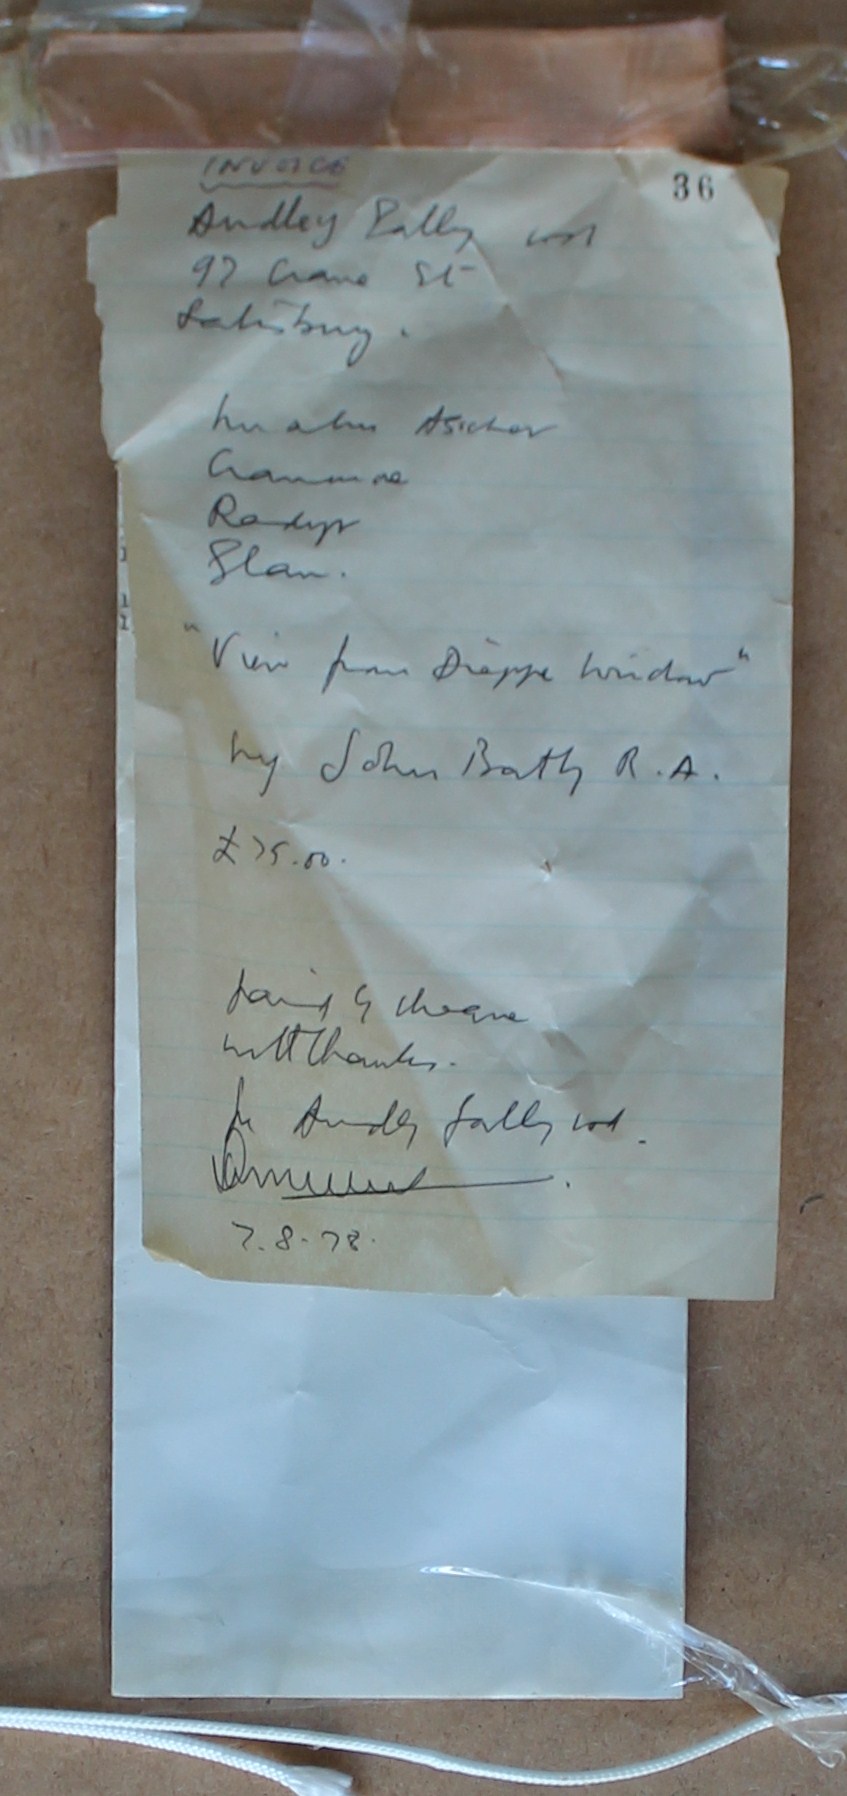 INVOICE
36
Audley Gallery Ltd
97 Crane St
Salisbury.
Radyr
Glam.
"View from Dieppe Window"
by John Bratby R.A.
£75.00.
Paid by cheque
with thanks.
for Audley Gallery Ltd.
7.8.78.